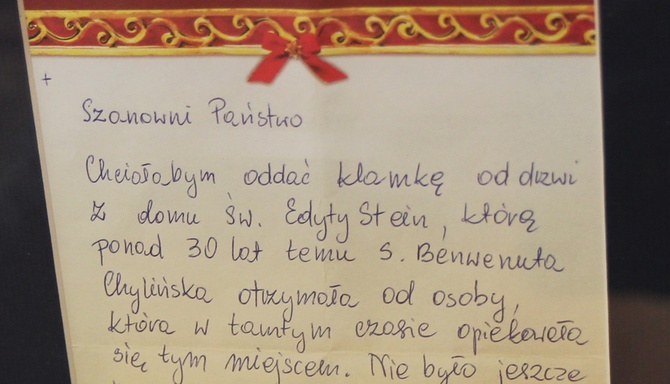 +
Szanowni Państwo
Chciałabym oddać klamkę od drzwi
z domu św. Edyty Stein, którą
ponad 30 lat temu S. Benwenuta
Chylińska otrzymała od osoby,
która w tamtym czasie opiekowała
się tym miejscem. Nie było jeszcze